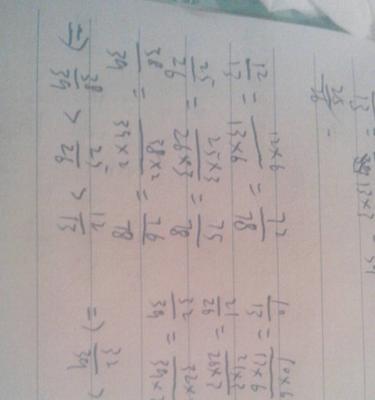 12/13 = 12×6/13×6 = 72/78
25/26 = 25×3/26×3 = 75/78
38/39 = 38×2/39×2 = 76/78
=) 38/39 > 25/26 > 12/13
10/13 = 10×6/13×6
21/26 = 21×3/26×3
32/39 = 32×/39×2
=) 32/39 >
25/26 =